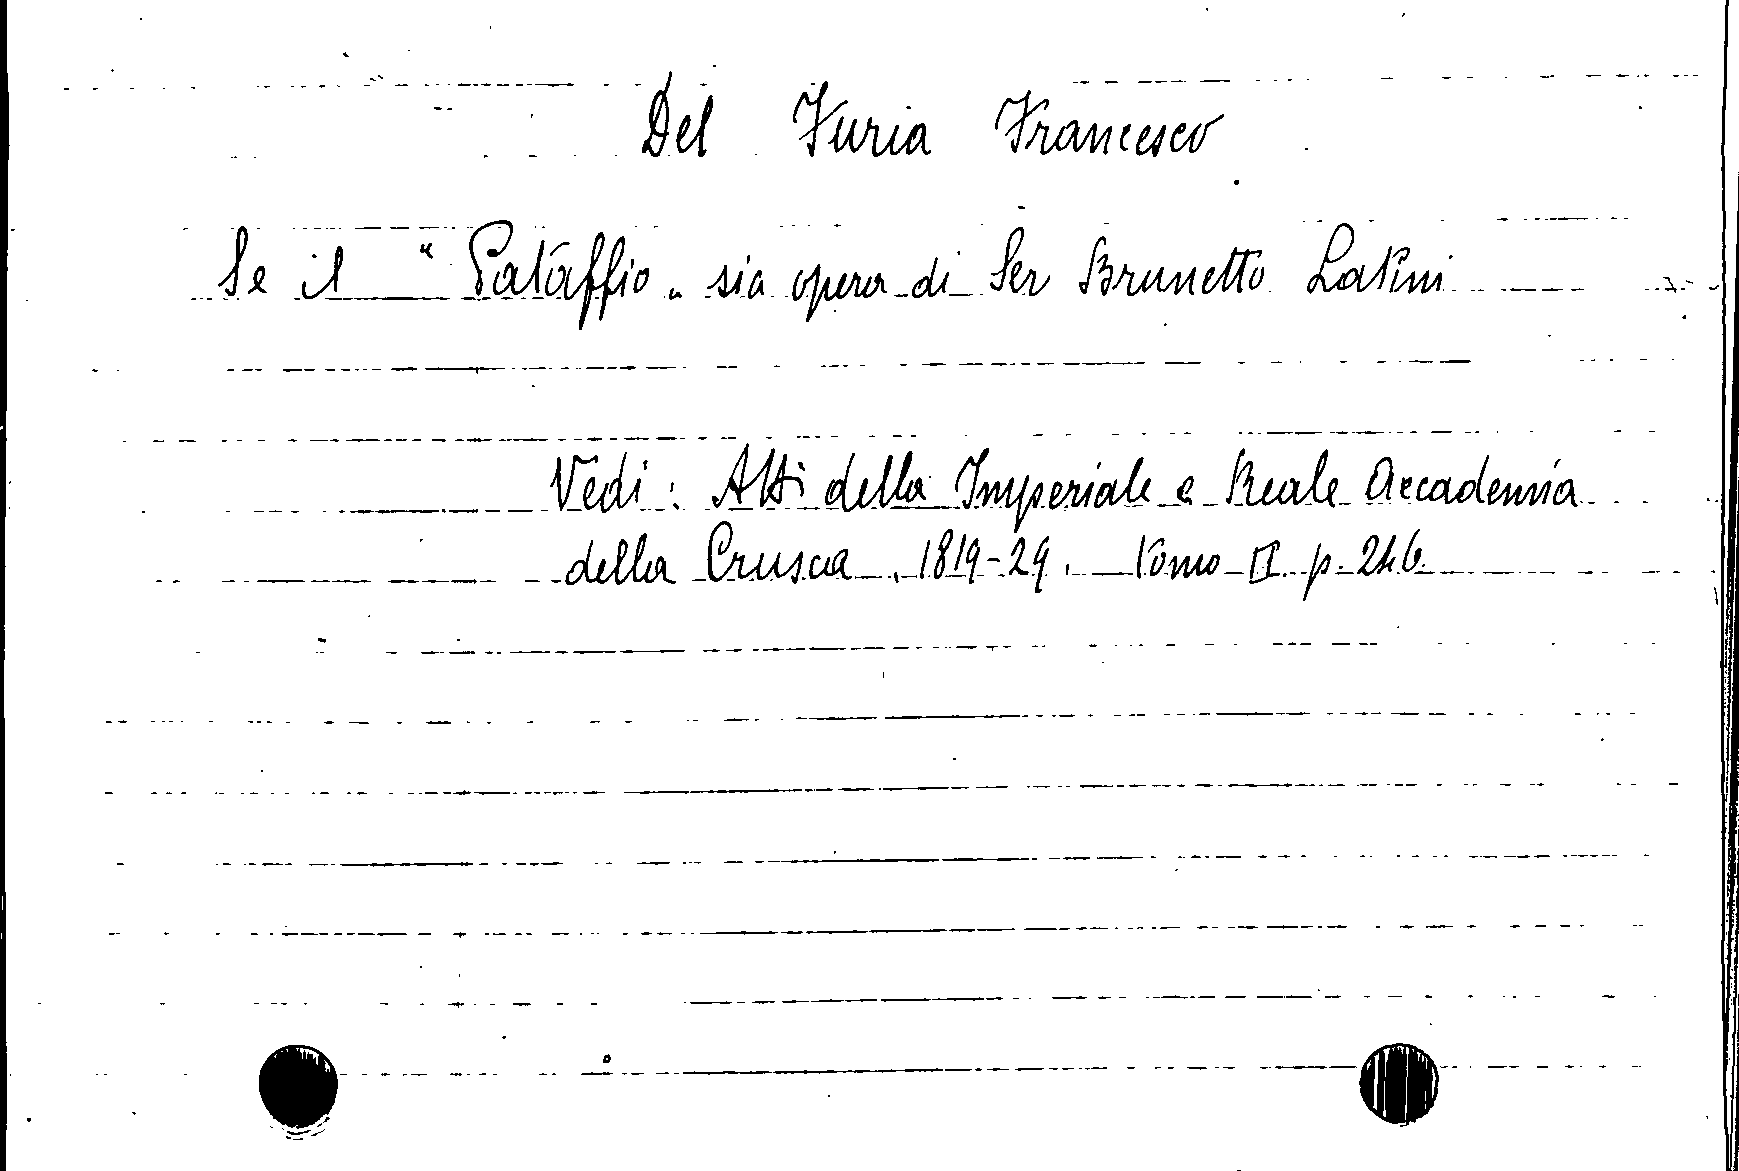 Del Furia Francesco
Se il "Pataffio" sia opera di Ser Brunetto Latini
Vedi: Atti della Imperiale e Reale Accademia
della Crusca, 1819-29. Tomo II p. 246